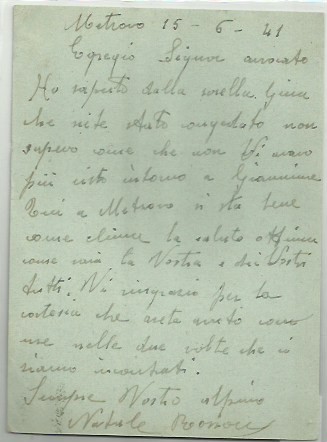 Metovo 15 - 6 - 41
Egregio Signor avvocato
Ho saputo dalla sorella Gina
che siete stato congedato non
sapevo come che non Vi avevo
più visto intorno a
Qui a Metovo si sta bene
come clima la salute ottima
come sia la Vostra e dei Vostri
tutti. Vi ringrazio per la
cortesia che siete avuto con
me nelle due volte che ci
siamo incontrati.
Sempre Vostro alpino
Natale